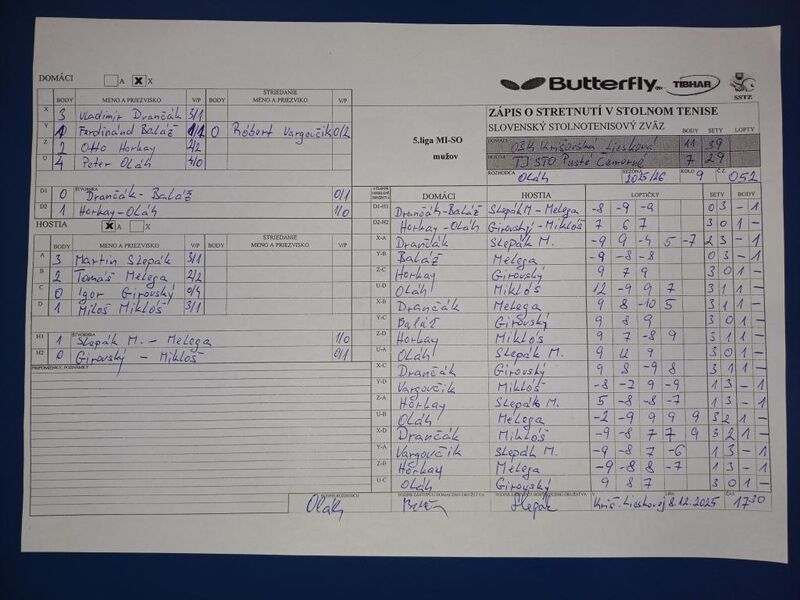 DOMÁCI A X X
Butterfly TIBHAR SSTZ
BODY MENO A PRIEZVISKO V/P BODY STRIEDANIE MENO A PRIEZVISKO V/P
X 3 Vladimír Drančák 3/1
Y 1 Ferdinand Baláž 1/1 0 Róbert Vargovčík 0/2
Z 2 Otto Horkay 2/2
U 4 Peter Oláh 4/0
5.liga MI-SO
mužov
ZÁPIS O STRETNUTÍ V STOLNOM TENISE
SLOVENSKÝ STOLNOTENISOVÝ ZVÄZ BODY SETY LOPTY
DOMÁCI OŠK Krišovská Liesková 11 39
HOSTIA TJ STO Pusté Čemerné 7 29
ROZHODCA Oláh SEZÓNA 2025/26 KOLO 9 Č.Z. 052
ŠTVORHRA
D1 0 Drančák - Baláž 0/1
D2 1 Horkay - Oláh 1/0
HOSTIA X A X
BODY MENO A PRIEZVISKO V/P BODY STRIEDANIE MENO A PRIEZVISKO V/P
A 3 Martin Slepák 3/1
B 2 Tomáš Melega 2/2
C 0 Igor Girovský 0/4
D 1 Miloš Mikloš 3/1
ŠTVORHRA
H1 1 Slepák M. - Melega 1/0
H2 0 Girovský - Mikloš 0/1
PRIPOMIENKY, POZNÁMKY
DOMÁCI HOSTIA LOPTIČKY SETY BODY
D1-H1 Drančák-Baláž Slepák M - Melega -8 -9 -9 0 3 - 1
D2-H2 Horkay-Oláh Girovský-Mikloš 7 6 7 3 0 1 -
X-A Drančák Slepák M. -9 9 -4 5 -7 2 3 - 1
Y-B Baláž Melega -9 -8 -8 0 3 - 1
Z-C Horkay Girovský 9 7 9 3 0 1 -
U-D Oláh Mikloš 12 -9 9 7 3 1 1 -
X-B Drančák Melega 9 8 -10 5 3 1 1 -
Y-C Baláž Girovský 9 8 9 3 0 1 -
Z-D Horkay Mikloš 9 7 -8 9 3 1 1 -
U-A Oláh Slepák M. 9 11 9 3 0 1 -
X-C Drančák Girovský 9 8 -9 8 3 1 1 -
Y-D Vargovčík Mikloš -8 -7 9 -9 1 3 - 1
Z-A Horkay Slepák M. 5 -8 -8 -7 1 3 - 1
U-B Oláh Melega -2 -9 9 9 9 3 2 1 -
X-D Drančák Mikloš -9 -8 7 7 9 3 2 1 -
Y-A Vargovčík Slepák M. -9 -8 7 -6 1 3 - 1
Z-B Horkay Melega -9 -8 8 -7 1 3 - 1
U-C Oláh Girovský 9 8 7 3 0 1 -
PODPIS ROZHODCU Oláh PODPIS ZÁSTUPCU DOMÁCEHO DRUŽSTVA Slepák Kriš. Lieskovej 8.12.2025 ČAS 17 30